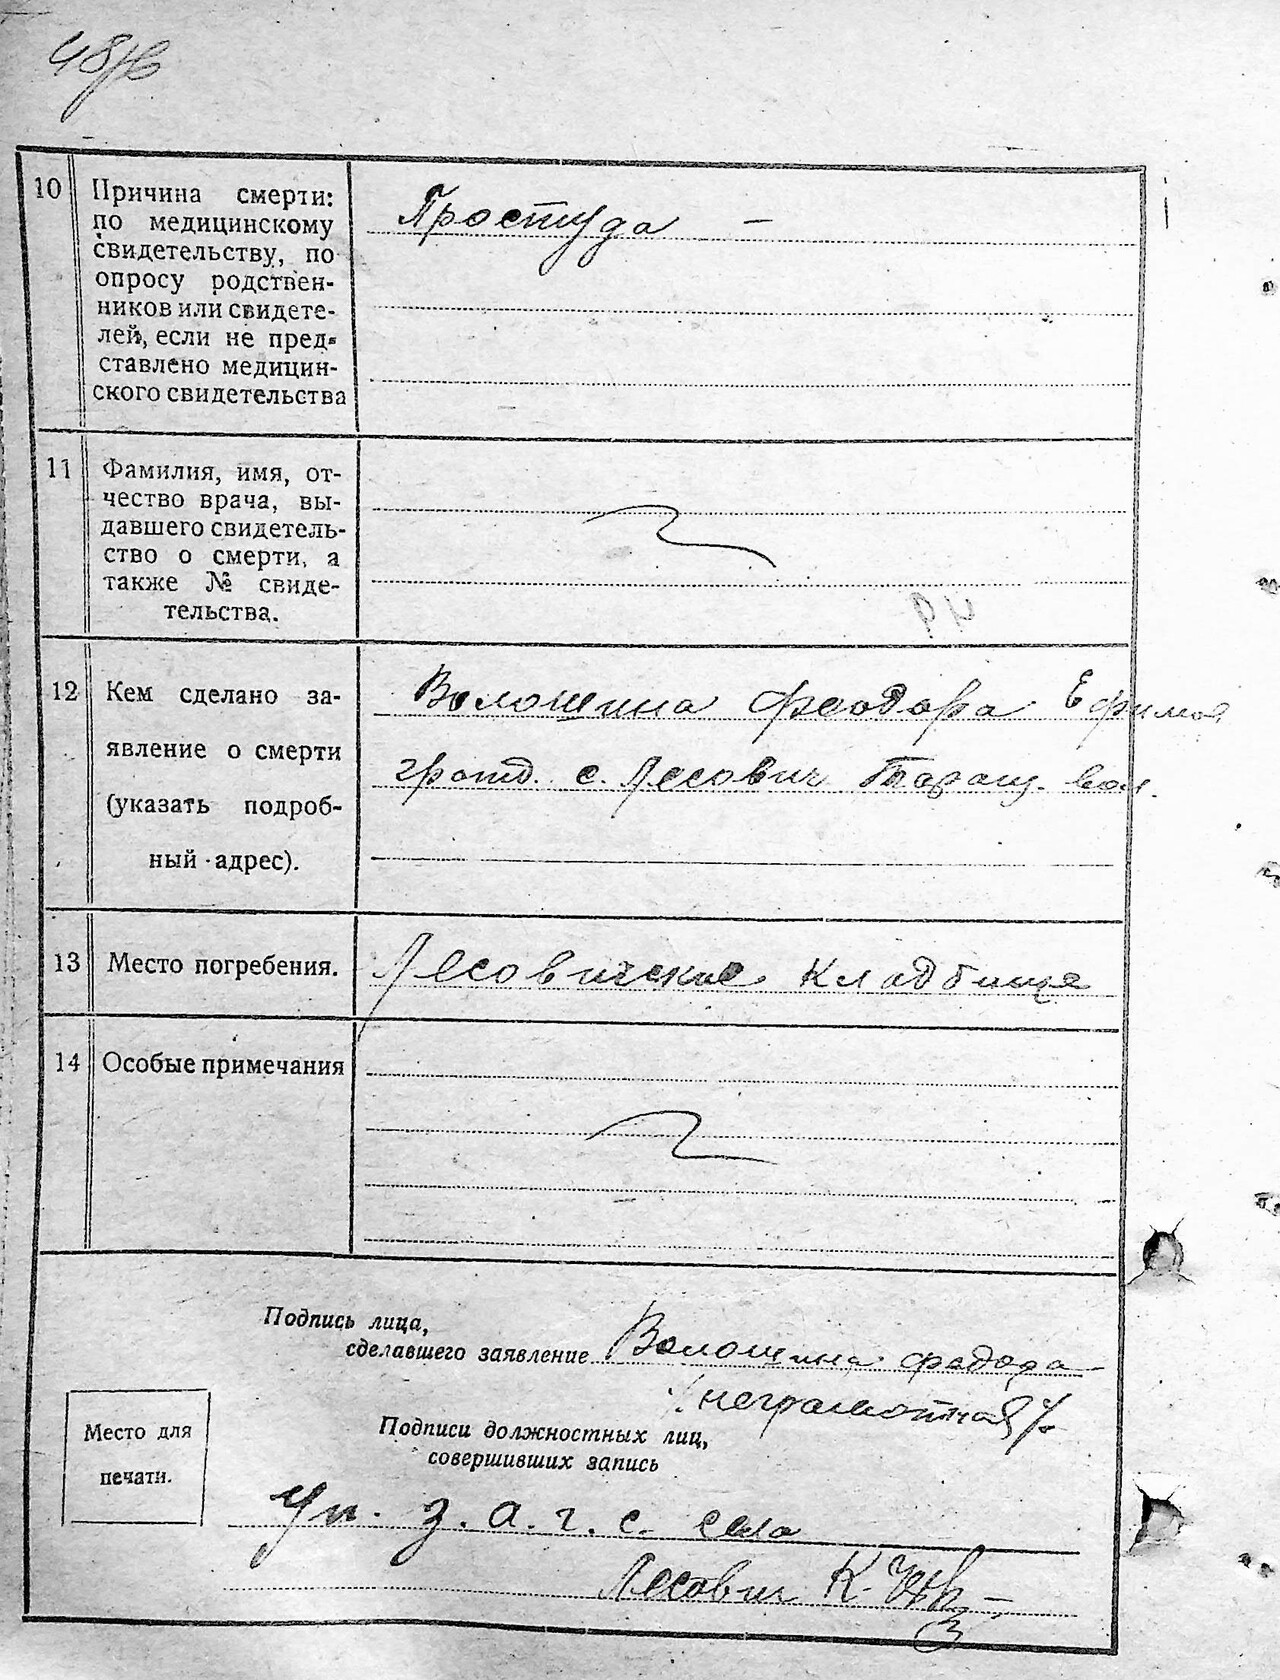 10 Причина смерти: по медицинскому свидетельству, по опросу родственников или свидетелей, если не представлено медицинского свидетельства
Простуда —
11 Фамилия, имя, отчество врача, выдавшего свидетельство о смерти, а также № свидетельства.
12 Кем сделано заявление о смерти (указать подробный адрес).
Волошина Феодора Ефимов
гражд. с. Лесович Таращ. вол.
13 Место погребения.
Лесовичские Кладбище
14 Особые примечания
Подпись лица,
сделавшего заявление Волошина Федора
/неграмотная/
Подписи должностных лиц,
совершивших запись
Место для
печати.
Уп. з. а. г. с. села
Лесович К.